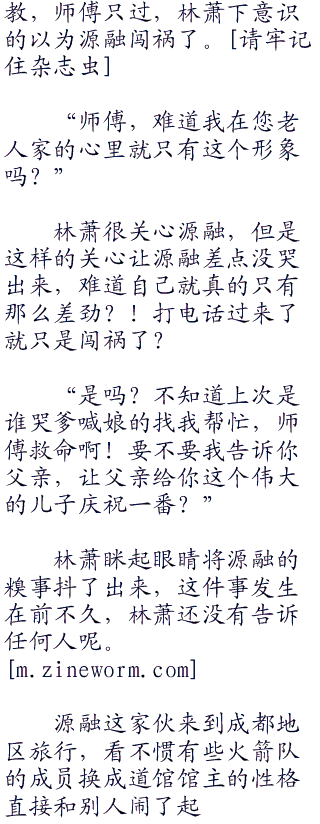 教，师傅只过，林萧下意识
的以为源融闯祸了。[请牢记
住杂志虫]
“师傅，难道我在您老
人家的心里就只有这个形象
吗？”
林萧很关心源融，但是
这样的关心让源融差点没哭
出来，难道自己就真的只有
那么差劲？！打电话过来了
就只是闯祸了？
“是吗？不知道上次是
谁哭爹喊娘的找我帮忙，师
傅救命啊！要不要我告诉你
父亲，让父亲给你这个伟大
的儿子庆祝一番？”
林萧眯起眼睛将源融的
糗事抖了出来，这件事发生
在前不久，林萧还没有告诉
任何人呢。
[m.zineworm.com]
源融这家伙来到成都地
区旅行，看不惯有些火箭队
的成员换成道馆馆主的性格
直接和别人闹了起